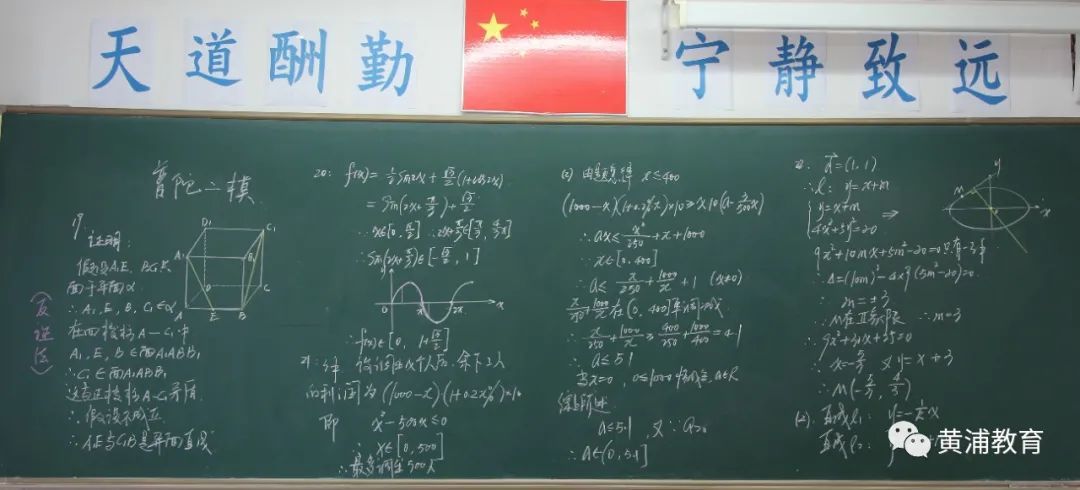 天道酬勤
宁静致远
普陀二模
19.
证明:
假设A₁E、BC₁共
面于平面α
∴A₁, E, B, C₁∈α
在四棱柱A—C₁中
A₁, E, B∈面A₁ABB₁
∴C₁∈面A₁ABB₁
这与正棱柱A-C₁矛盾
∴假设不成立
∴A₁E与C₁B是异面直线
(反证法)
D₁
C₁
A₁
B₁
D
C
A
E
B
20: f(x)=½sin2x+√3/2(1+cos2x)
=sin(2x+π/3)+√3/2
∵x∈[0,π/2] ∴2x+π/3∈[π/3,4/3π]
∴sin(2x+π/3)∈[-√3/2,1]
y
x
∴f(x)∈[0,1+√3/2]
21:
设调出x个人后,余下的人
的利润为(1000-x)(1+0.2x%)×10
即
x²-500x≤0
∴x∈[0,500]
∴最多调出500人
(2) 由题意得 x≤400
(1000-x)(1+0.2%x)×10≥x10(a-3/500x)
∴ax≤x²/250+x+1000
∵x∈[0,400]
∴a≤x/250+1000/x+1 (x≠0)
x/250+1000/x在(0,400]单调递减
∴x/250+1000/x≥400/250+1000/400=4.1
∴a≤5.1
当x=0, 0≤1000恒成立, a∈R
综上所述
a≤5.1, 又∵a>0
∴a∈(0,5.1]
d=(1,1)
∴l: y=x+m
y=x+m
4x²+5y²=20
⇒
9x²+10mx+5m²-20=0只有一解
∴Δ=(10m)²-4×9(5m²-20)=0
∴m=±3
∵M在第二象限 ∴m=3
∴9x²+30x+25=0
∴x=-5/3 又y=x+3
∴M(-5/3,4/3)
(2) 直线l₁:
直线l₂:
y
M
x
黄浦教育